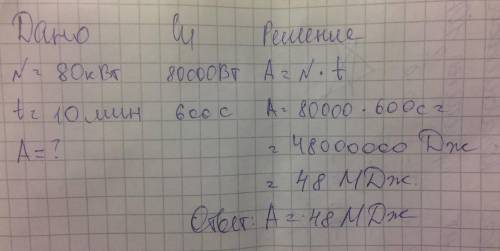 Дано Си Решение
N = 80кВт 80000Вт A = N · t
t = 10 мин 600 с A = 80000 · 600с =
A = ? = 48000000 Дж
= 48 МДж
Ответ: A = 48 МДж